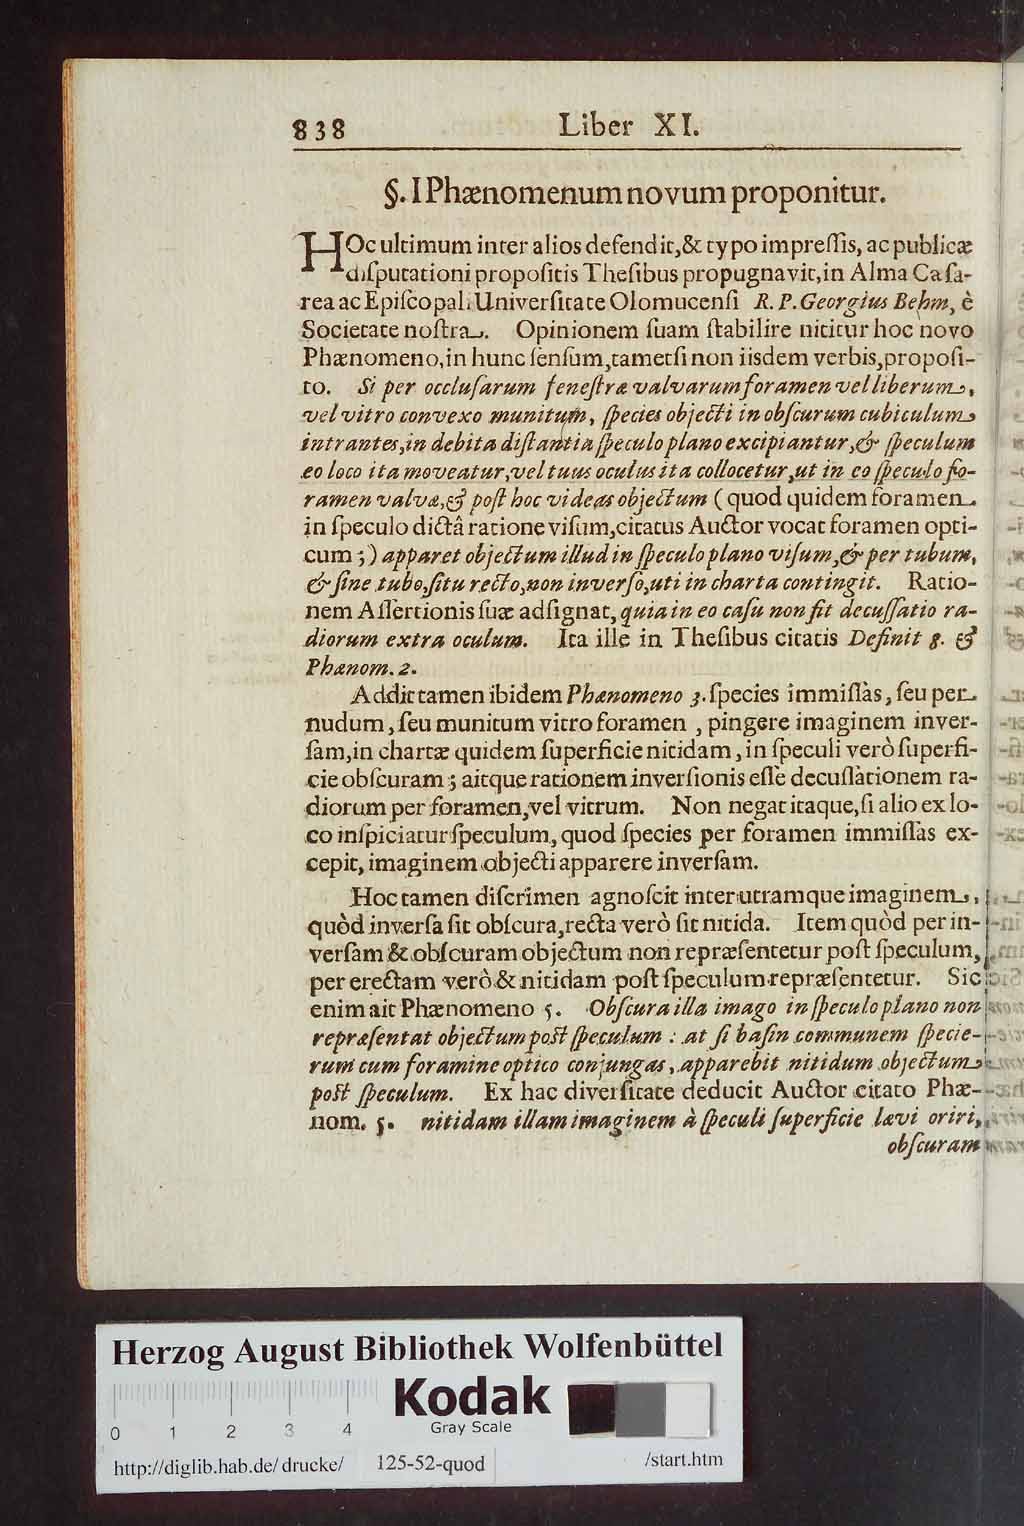 838 Liber XI.
§. I Phænomenum novum proponitur.
HOc ultimum inter alios defendit, & typo impreſſis, ac publicæ
diſputationi propoſitis Theſibus propugnavit, in Alma Cæſa-
rea ac Epiſcopali Univerſitate Olomucenſi R. P. Georgius Behm, è
Societate noſtra. Opinionem ſuam ſtabilire nititur hoc novo
Phænomeno, in hunc ſenſum, tametſi non iisdem verbis, propoſi-
to. Si per occluſarum feneſtræ valvarum foramen vel liberum,
vel vitro convexo munitum, ſpecies objecti in obſcurum cubiculum
intrantes, in debita diſtantia ſpeculo plano excipiantur, & ſpeculum
eo loco ita moveatur, vel tuus oculus ita collocetur, ut in eo ſpeculo fo-
ramen valvæ, & poſt hoc videas objectum (quod quidem foramen
in ſpeculo dictâ ratione viſum, citatus Auctor vocat foramen opti-
cum ;) apparet objectum illud in ſpeculo plano viſum, & per tubum,
& ſine tubo, ſitu recto, non inverſo, uti in charta contingit. Ratio-
nem Aſſertionis ſuæ adſignat, quia in eo caſu non fit decuſſatio ra-
diorum extra oculum. Ita ille in Theſibus citatis Definit 8. &
Phænom. 2.
Addit tamen ibidem Phænomeno 3. ſpecies immiſſas, ſeu per
nudum, ſeu munitum vitro foramen , pingere imaginem inver-
ſam, in chartæ quidem ſuperficie nitidam, in ſpeculi verò ſuperfi-
cie obſcuram ; aitque rationem inverſionis eſſe decuſſationem ra-
diorum per foramen, vel vitrum. Non negat itaque, ſi alio ex lo-
co inſpiciatur ſpeculum, quod ſpecies per foramen immiſſas ex-
cepit, imaginem objecti apparere inverſam.
Hoc tamen diſcrimen agnoſcit inter utramque imaginem,
quòd inverſa ſit obſcura, recta verò ſit nitida. Item quòd per in-
verſam & obſcuram objectum non repræſentetur poſt ſpeculum,
per erectam verò & nitidam poſt ſpeculum repræſentetur. Sic
enim ait Phænomeno 5. Obſcura illa imago in ſpeculo plano non
repræſentat objectum poſt ſpeculum : at ſi baſin communem ſpecie-
rum cum foramine optico conjungas, apparebit nitidum objectum
poſt ſpeculum. Ex hac diverſitate deducit Auctor citato Phæ-
nom. 5. nitidam illam imaginem à ſpeculi ſuperficie lævi oriri,
obſcuram
Herzog August Bibliothek Wolfenbüttel
Kodak
Gray Scale
0 1 2 3 4
http://diglib.hab.de/drucke/ 125-52-quod /start.htm